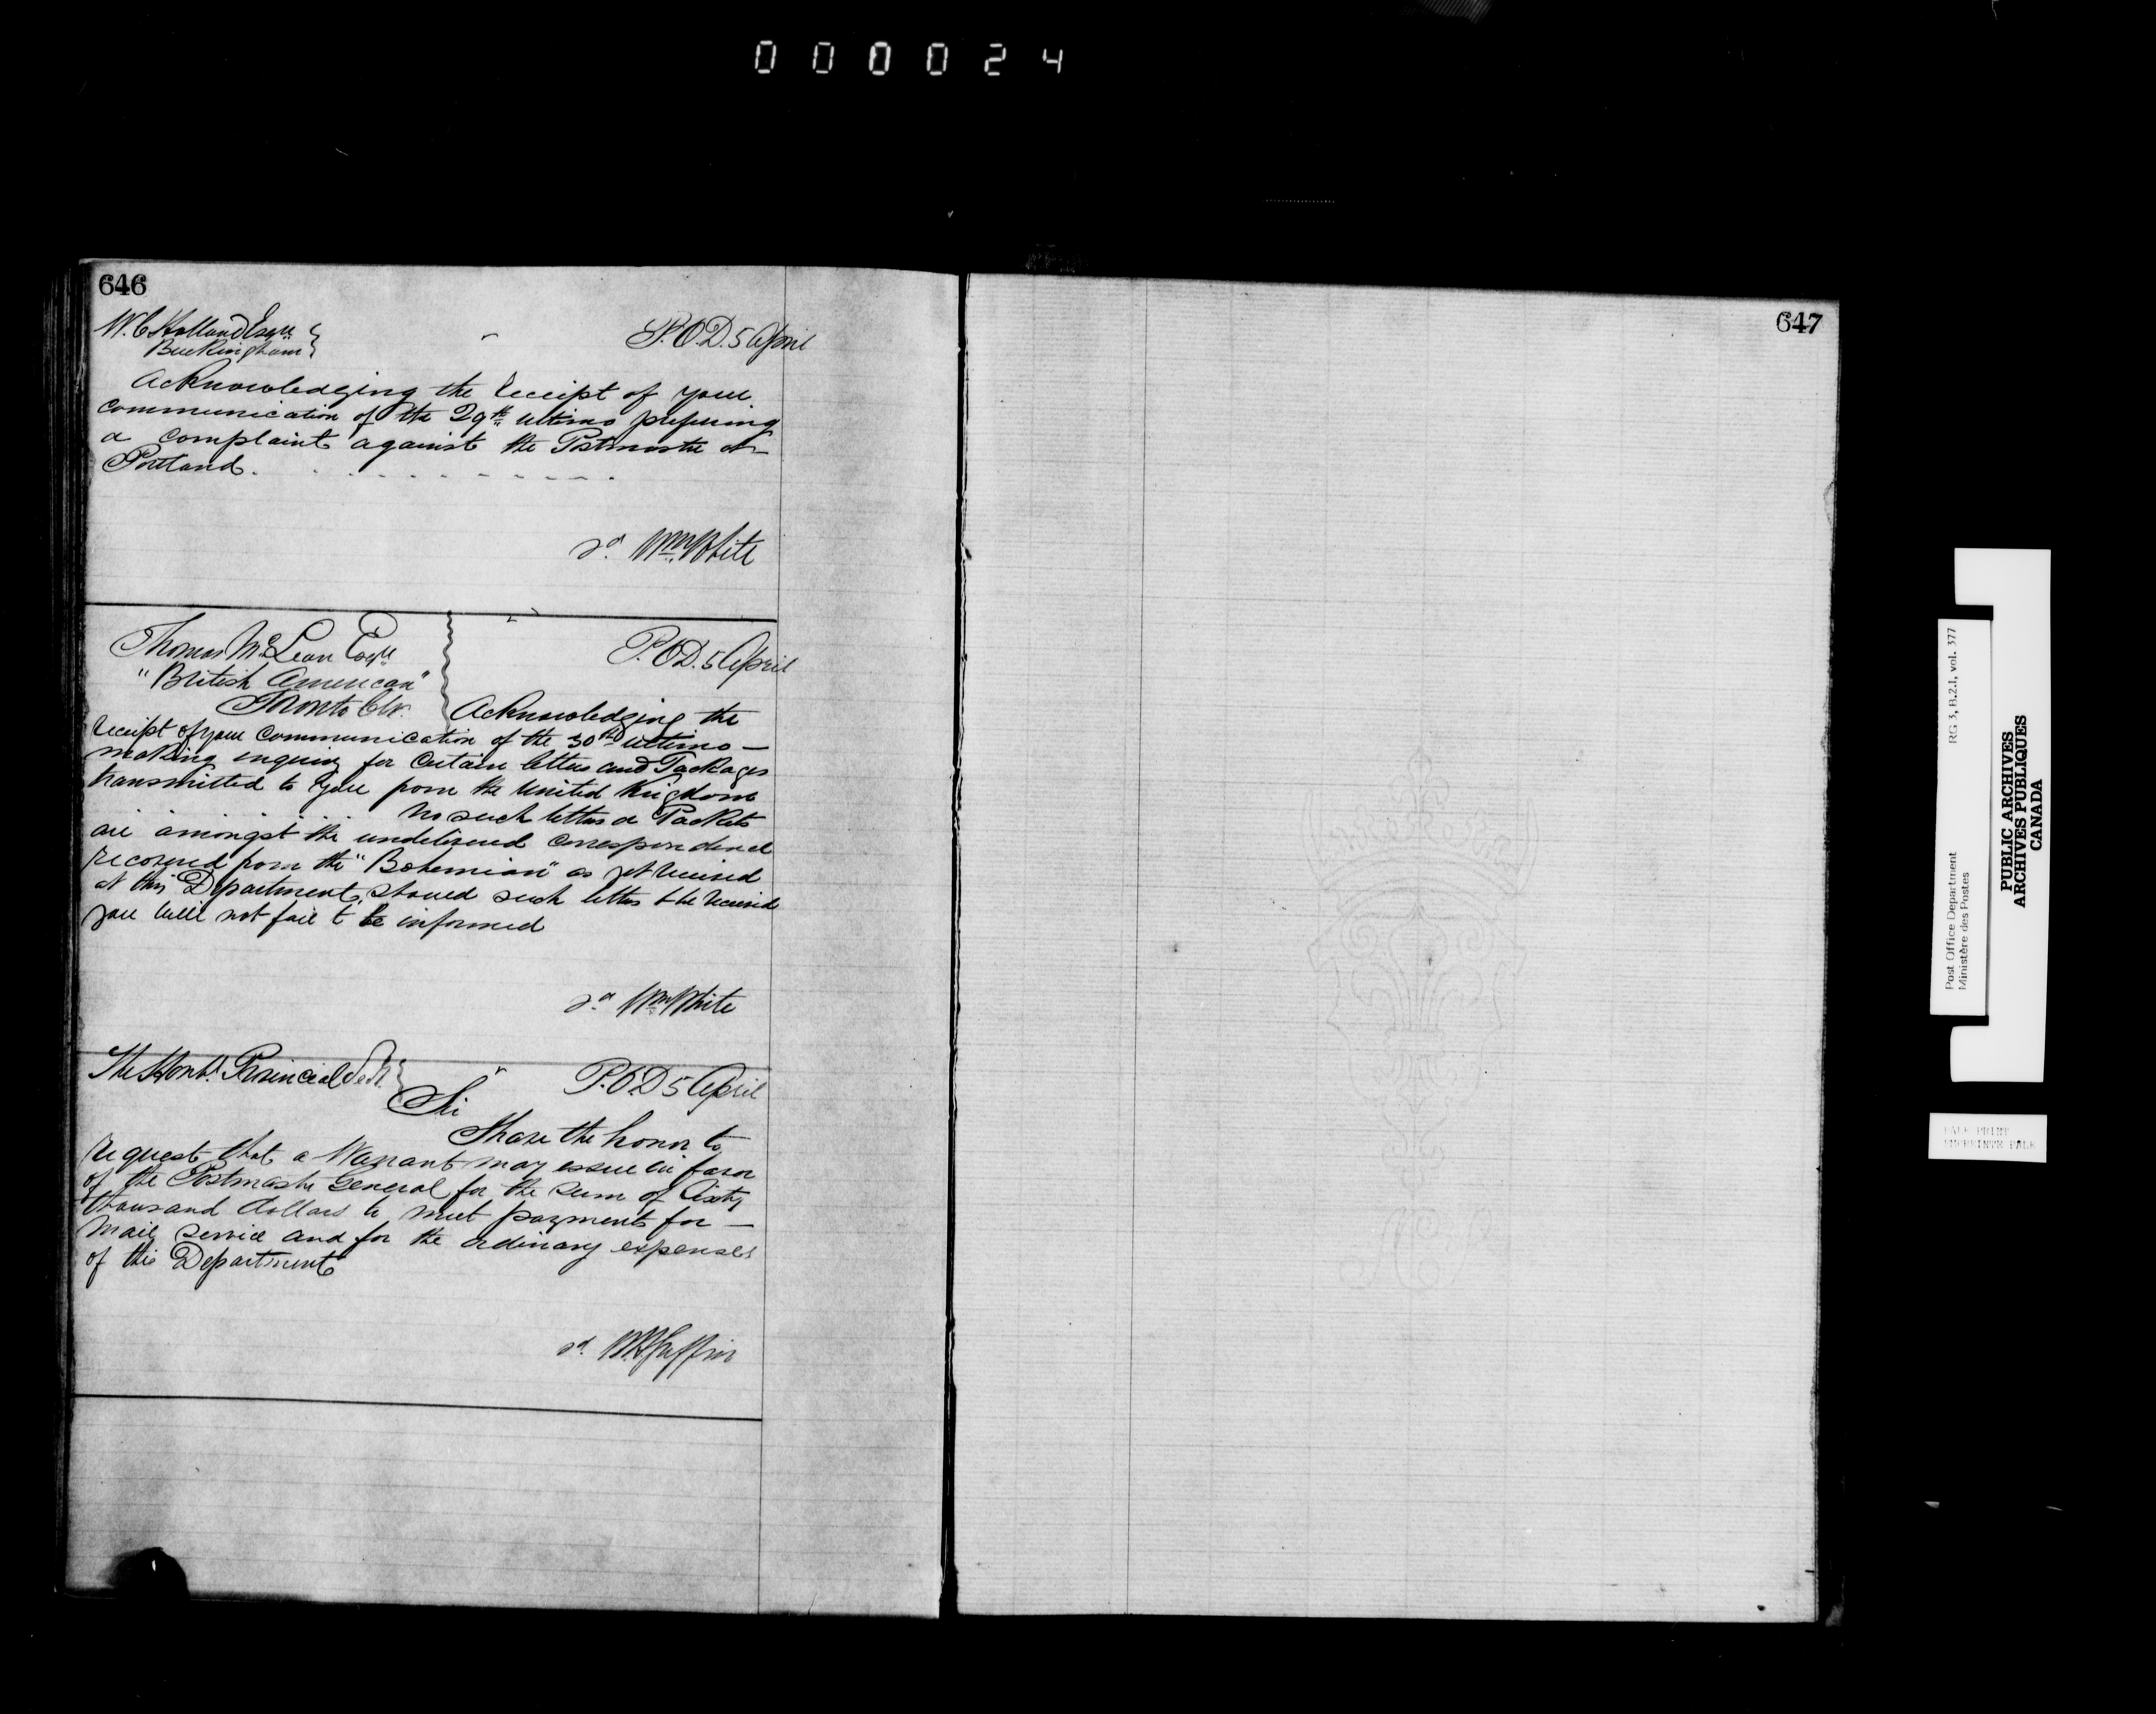 000024
646
W. C. Holland Esqre
Buckingham
P.O.D. 5 April
Acknowledging the receipt of your
communication of the 29th ultimo preferring
a complaint against the Postmaster at
Portland.
sd. Wm. White
Thomas McLean Esqre
"British American"
Toronto C.W.
P.O.D. 5 April
Acknowledging the
receipt of your communication of the 30th ultimo —
making enquiry for certain letters and Packages
transmitted to you from the United Kingdom
No such letters or Packets
are amongst the undelivered correspondence
recovered from the "Bohemian" as yet received
at this Department, should such letters be received
you will not fail to be informed
sd. Wm. White
The Honbl. Provincial Secy.
P.O.D 5 April
Sir
I have the honor to
request that a Warrant may issue in favor
of the Postmaster General for the sum of Sixty
thousand dollars to meet payments for —
Mail Service and for the ordinary expenses
of this Department
sd. W.H. Griffin
647
Post Office Department
Ministère des Postes
RG 3, B.2.1, vol. 377
PUBLIC ARCHIVES
ARCHIVES PUBLIQUES
CANADA
PALE PRINT
IMPRIMÉE PALE